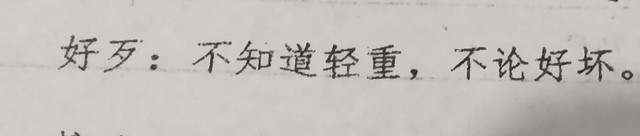 好歹：不知道轻重，不论好坏。